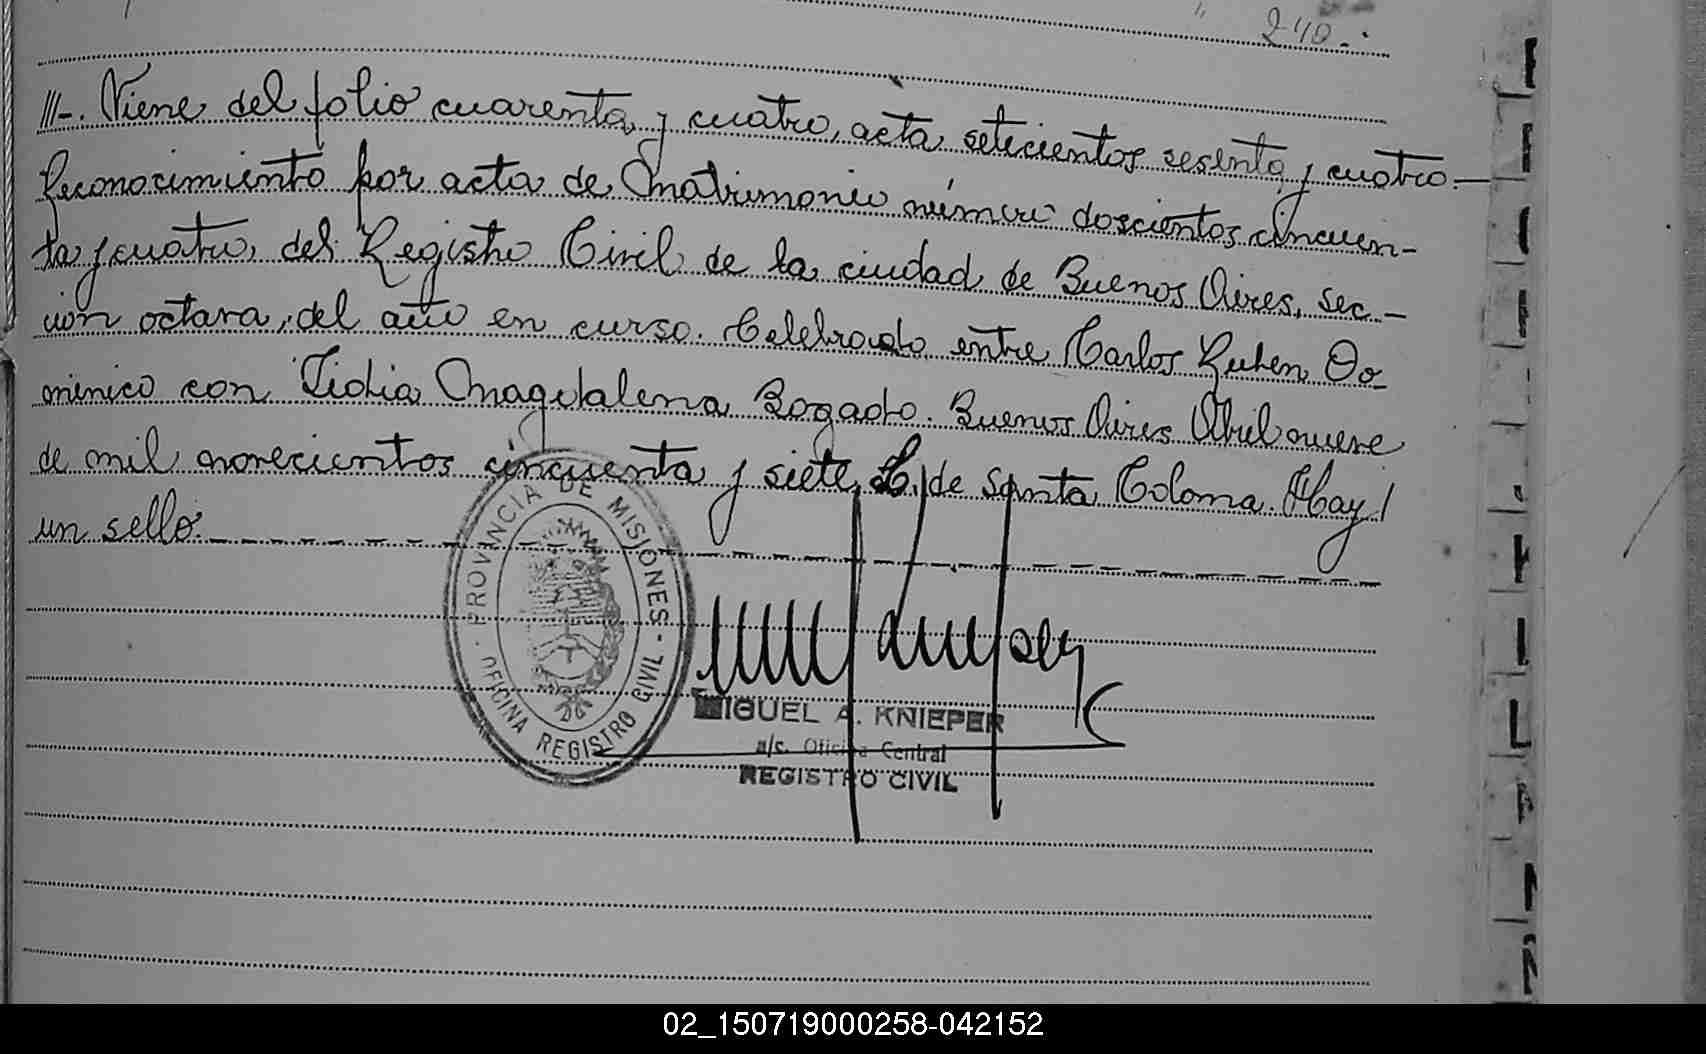 240.-
///-. Viene del folio cuarenta y cuatro, acta setecientos sesenta y cuatro.—
Reconocimiento por acta de Matrimonio número doscientos cincuen-
ta y cuatro, del Registro Civil de la ciudad de Buenos Aires, sec-
ción octava, del año en curso. Celebrado entre Carlos Ruben Do-
minico con Lidia Magdalena Bogado. Buenos Aires Abril nueve
de mil novecientos cincuenta y siete. L. de Santa Coloma. Hay/
un sello.
PROVINCIA DE MISIONES - OFICINA REGISTRO CIVIL -
MIGUEL A. KNIEPER
a/c. Oficina Central
REGISTRO CIVIL
02_150719000258-042152